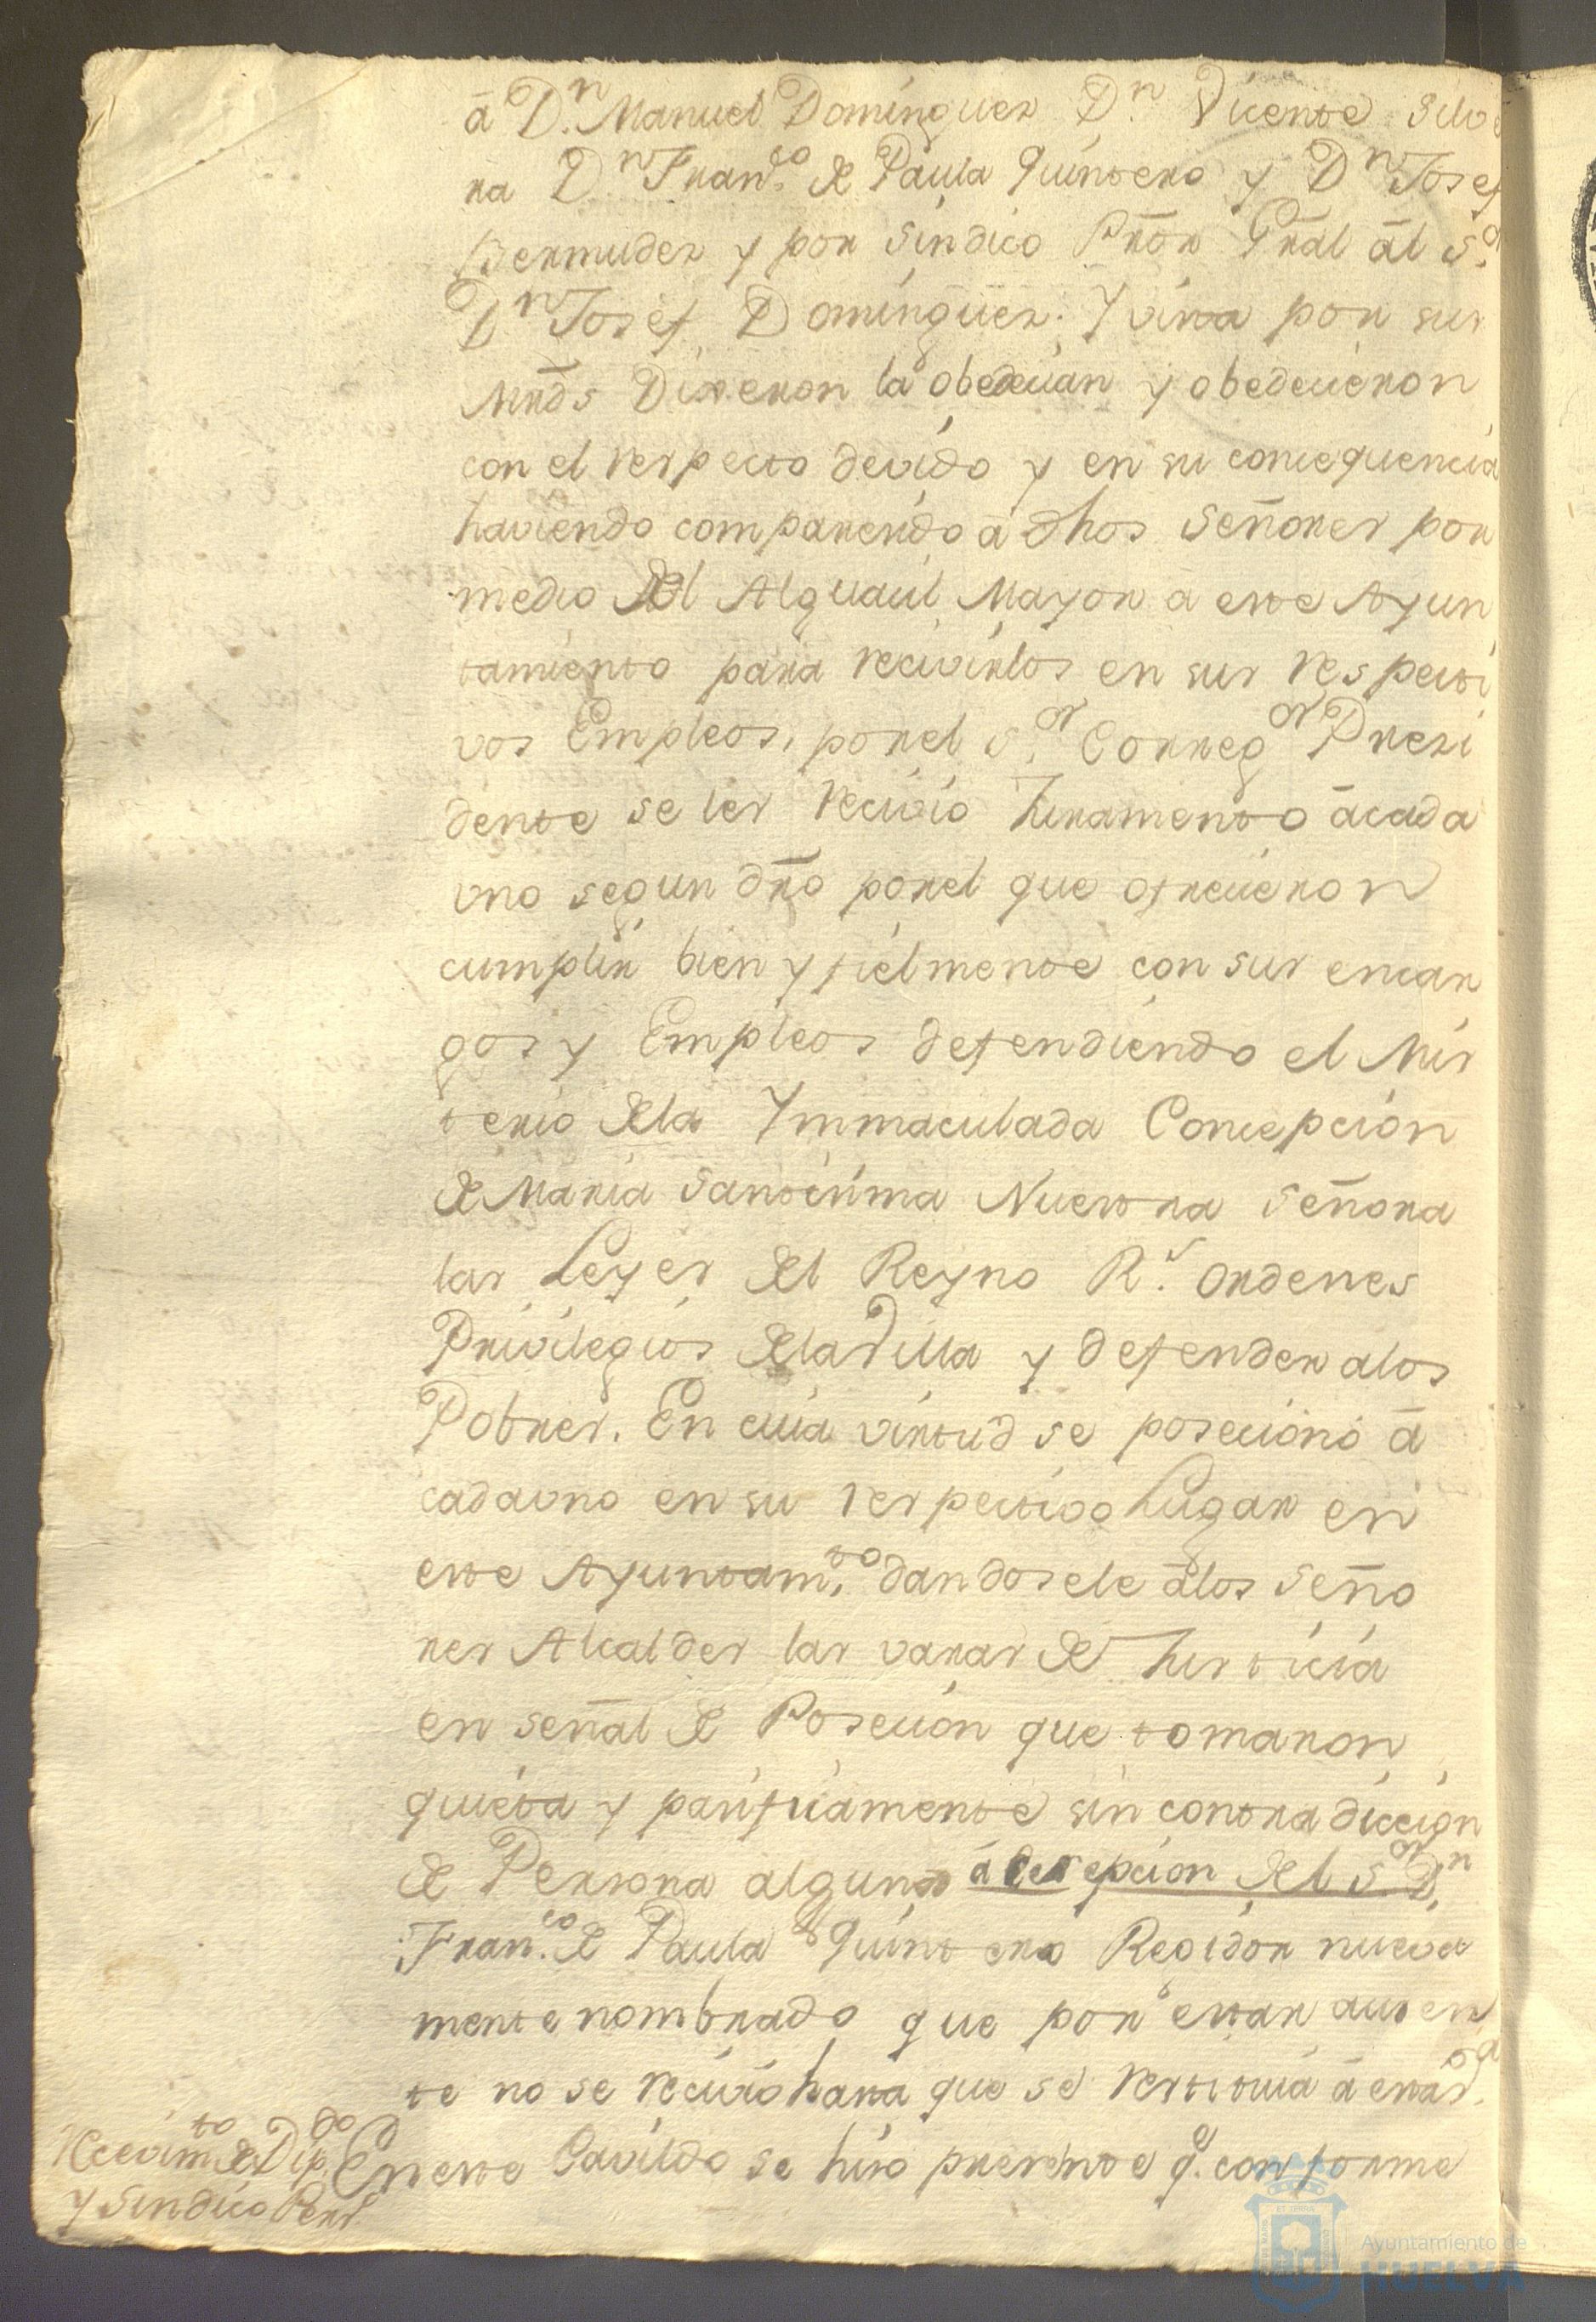 â D.n Manuel Dominguez D.n Vicente Silve
ra D.n Fran.co de Paula Quintero y D.n Josef
Bermudez y por Sindico Prôr Grâl âl S.or
D.n Josef Dominguez. Y vista por sus
Mrds Dixeron la obedecian y obedecieron
con el respecto devido y en su consequencia
haviendo comparecido â dhos Señores por
medio del Alguacil Mayor â este Ayun
tamiento para recivirlos en sus respecti
vos Empleos, porel S.or Correg.or Presi
dente se les recivio Juramento âcada
uno segun dro porel que ofrecieron
cumplir bien y fielmente con sus encar
gos y Empleos defendiendo el Mis
terio dela Ymmaculada Concepcion
de Maria Santisima Nuestra Señora
las Leyes del Reyno R.s ordenes
Privilegios dela Villa y defender alos
Pobres. En cuia virtud se posecionó â
cadauno en su respectivo Lugar en
este Ayuntam.to dandosele âlos Seño
res Alcaldes las varas de Justicia
en señal de Posecion que tomaron
quieta y pacificamente sin contradiccion
de Persona alguna â ecepcion del S.or D.n
Fran.co de Paula Quintero Regidor nueva
mente nombrado que por estar ausen
te no se recivió hasta que se restituia â esta
Recevim.to de Dip.do
y Sindico Pers.
En este Cavildo se hiso presente q.e conforme
Ayuntamiento de
HUELVA